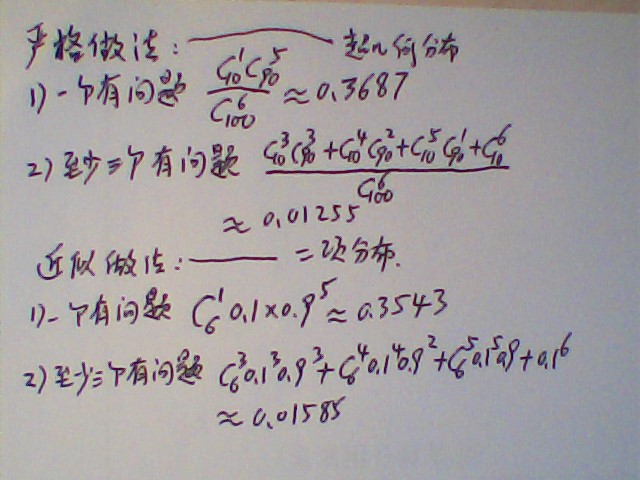 严格做法：—— 超几何分布
1) 一个有问题 C₁₀¹C₉₀⁵ / C₁₀₀⁶ ≈ 0.3687
2) 至少三个有问题 (C₁₀³C₉₀³+C₁₀⁴C₉₀²+C₁₀⁵C₉₀¹+C₁₀⁶) / C₁₀₀⁶
≈ 0.01255
近似做法：—— 二项分布.
1) 一个有问题 C₆¹0.1×0.9⁵≈0.3543
2) 至少三个有问题 C₆³0.1³0.9³+C₆⁴0.1⁴0.9²+C₆⁵0.1⁵0.9+0.1⁶
≈ 0.01585